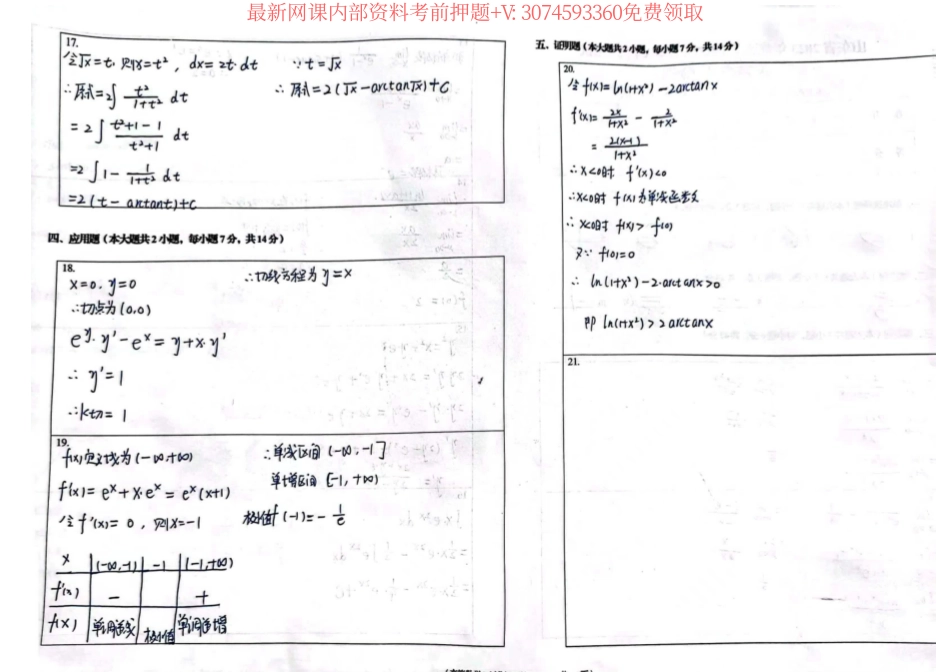 最新网课内部资料考前押题+V: 3074593360免费领取
17.
令√x=t, 则x=t², dx=2t·dt
∴原式=2∫ t²/(1+t²) dt
=2∫ (t²+1-1)/(t²+1) dt
=2∫1- 1/(1+t²) dt
=2(t-arctant)+c
∵t=√x
∴原式=2(√x-arctan√x)+C
四、应用题（本大题共2小题，每小题7分，共14分）
18.
x=0, y=0
∴切点为(0,0)
e^y·y'-e^x=y+x·y'
∴y'=1
∴k切=1
∴切线方程为y=x
19.
f(x)定义域为(-∞,+∞)
f'(x)=e^x+x·e^x=e^x(x+1)
令f'(x)=0, 则x=-1
x (-∞,-1) -1 (-1,+∞)
f'(x) - +
f(x) 单调递减 极小值 单调递增
∴单减区间(-∞,-1]
单增区间[-1,+∞)
极小值f(-1)=-1/e
五、证明题（本大题共2小题，每小题7分，共14分）
20.
令f(x)=ln(1+x²)-2arctanx
f'(x)= 2x/(1+x²) - 2/(1+x²)
= 2(x-1)/(1+x²)
∴x<0时 f'(x)<0
∴x<0时 f(x)为单减函数
∴x<0时 f(x)>f(0)
又∵f(0)=0
∴ln(1+x²)-2·arctanx>0
即ln(1+x²)>2arctanx
21.